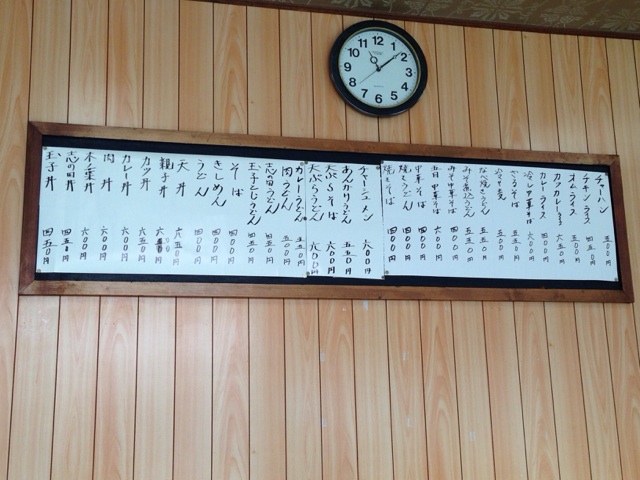 チャーハン 五〇〇円
チキンライス 四五〇円
オムライス 五五〇円
カツカレーライス 六五〇円
カレーライス 五〇〇円
冷し中華そば 六〇〇円
ざるそば 五五〇円
冷や麦 五五〇円
なべ焼きうどん 五五〇円
みそ煮込うどん 五五〇円
みそ中華そば 四五〇円
五目中華そば 六〇〇円
中華そば 四〇〇円
焼うどん 四〇〇円
焼きそば 四〇〇円
チャーシューメン 六〇〇円
あんかけうどん 五五〇円
天ぷらそば 六〇〇円
天ぷらうどん 六〇〇円
カレーうどん 五五〇円
肉うどん 五〇〇円
志の田うどん 四五〇円
玉子とじうどん 四五〇円
そば 四〇〇円
きしめん 四〇〇円
うどん 四〇〇円
天丼 六五〇円
親子丼 五〇〇円
カツ丼 六五〇円
カレー丼 六〇〇円
肉丼 六〇〇円
木の葉丼 六〇〇円
志の田丼 四五〇円
玉子丼 四五〇円
12
1
2
3
4
5
6
7
8
9
10
11